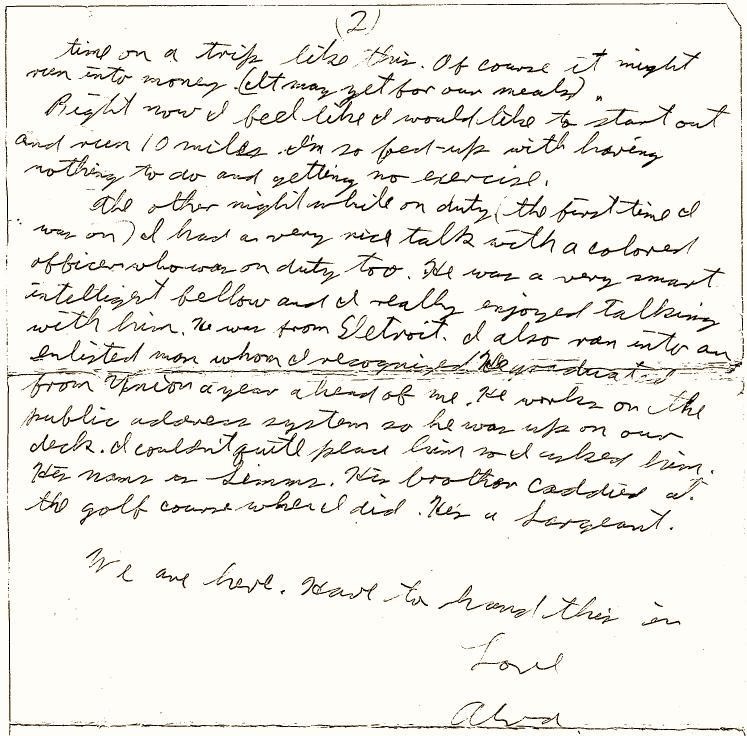 (2)
time on a trip like this. Of course it might
run into money. (It may yet for our meals).
Right now I feel like I would like to start out
and run 10 miles. I'm so fed-up with having
nothing to do and getting no exercise.
The other night while on duty (the first time I
was on) I had a very nice talk with a colored
officer who was on duty too. He was a very smart
intelligent fellow and I really enjoyed talking
with him. He was from Detroit. I also ran into an
enlisted man whom I recognized. He graduated
from Union a year ahead of me. He works on the
public address system so he was up on our
deck. I couldn't quite place him so I asked him.
His name is Simms. His brother caddied at
the golf course where I did. He's a Sargeant.
We are here. Have to hand this in
Love
Alva